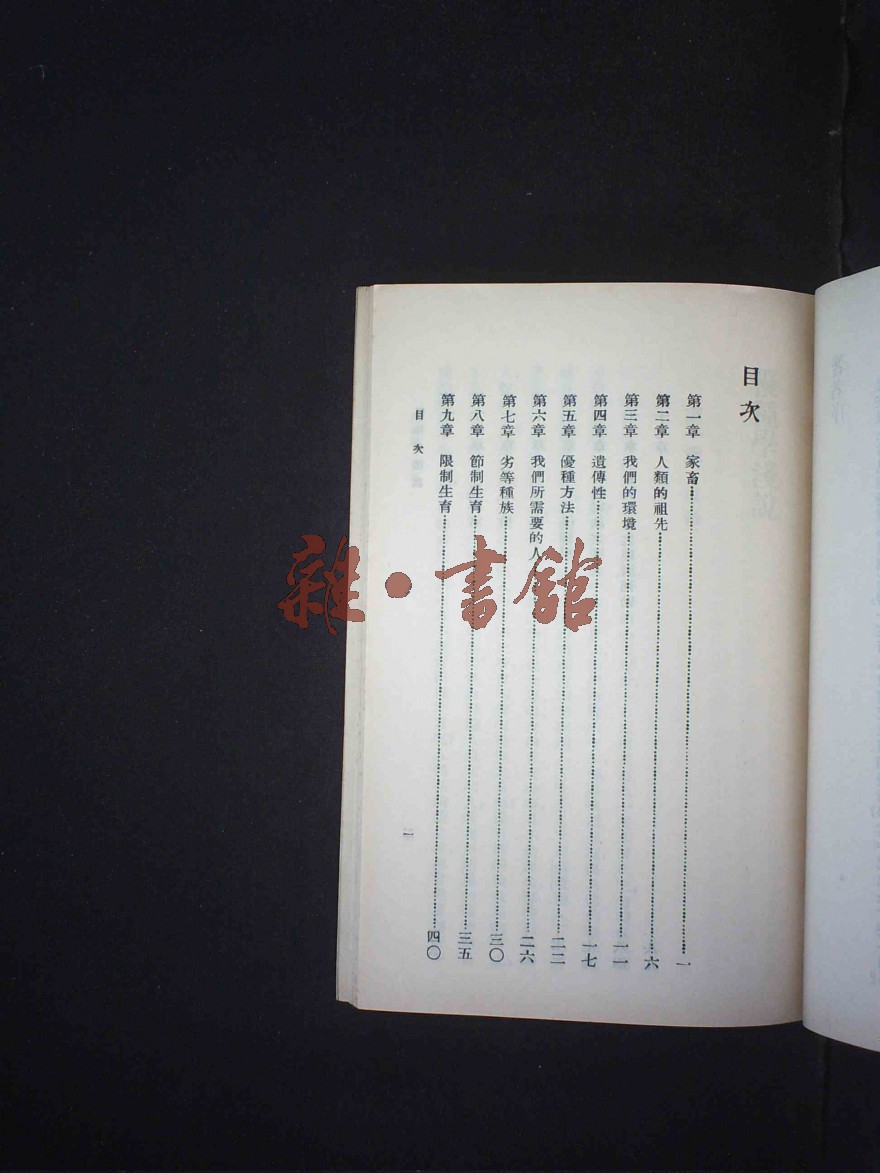 目次
第一章 家畜 一
第二章 人類的祖先 六
第三章 我們的環境 一一
第四章 遺傳性 一七
第五章 優種方法 二二
第六章 我們所需要的人 二六
第七章 劣等種族 三〇
第八章 節制生育 三五
第九章 限制生育 四〇
目次
一
雜·書館